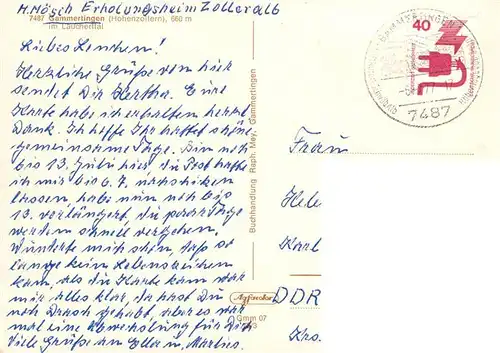 H. Mösch Erholungsheim Zolleralb
7487 Gammertingen (Hohenzollern), 660 m
im Lauchertal
Liebes Lenchen!
Herzliche Grüße von hier
sendet Dir Hertha. Eure
Karte habe ich erhalten herzl.
Dank. Ich hoffe Ihr hattet schöne
gemeinsame Tage. Bin noch
bis 13. Juli hier, die Post hatte
ich mir bis 6.7. nachschicken
lassen, habe nun noch bis
13. verlängert, die paar Tage
werden schnell vergehen.
Wunderte mich schon, daß so
lange kein Lebenszeichen
kam, als die Karte kam war
mir alles klar, da hast Du
noch Besuch gehabt, aber es war
mal eine Abwechslung für Dich
Viele Grüße an Ella u. Martin.
Buchhandlung Raph. Mey, Gammertingen
Agfacolor
Gmm 07
40
GAMMERTINGEN
7487
Frau
Hele
Karl
DDR
Krs.